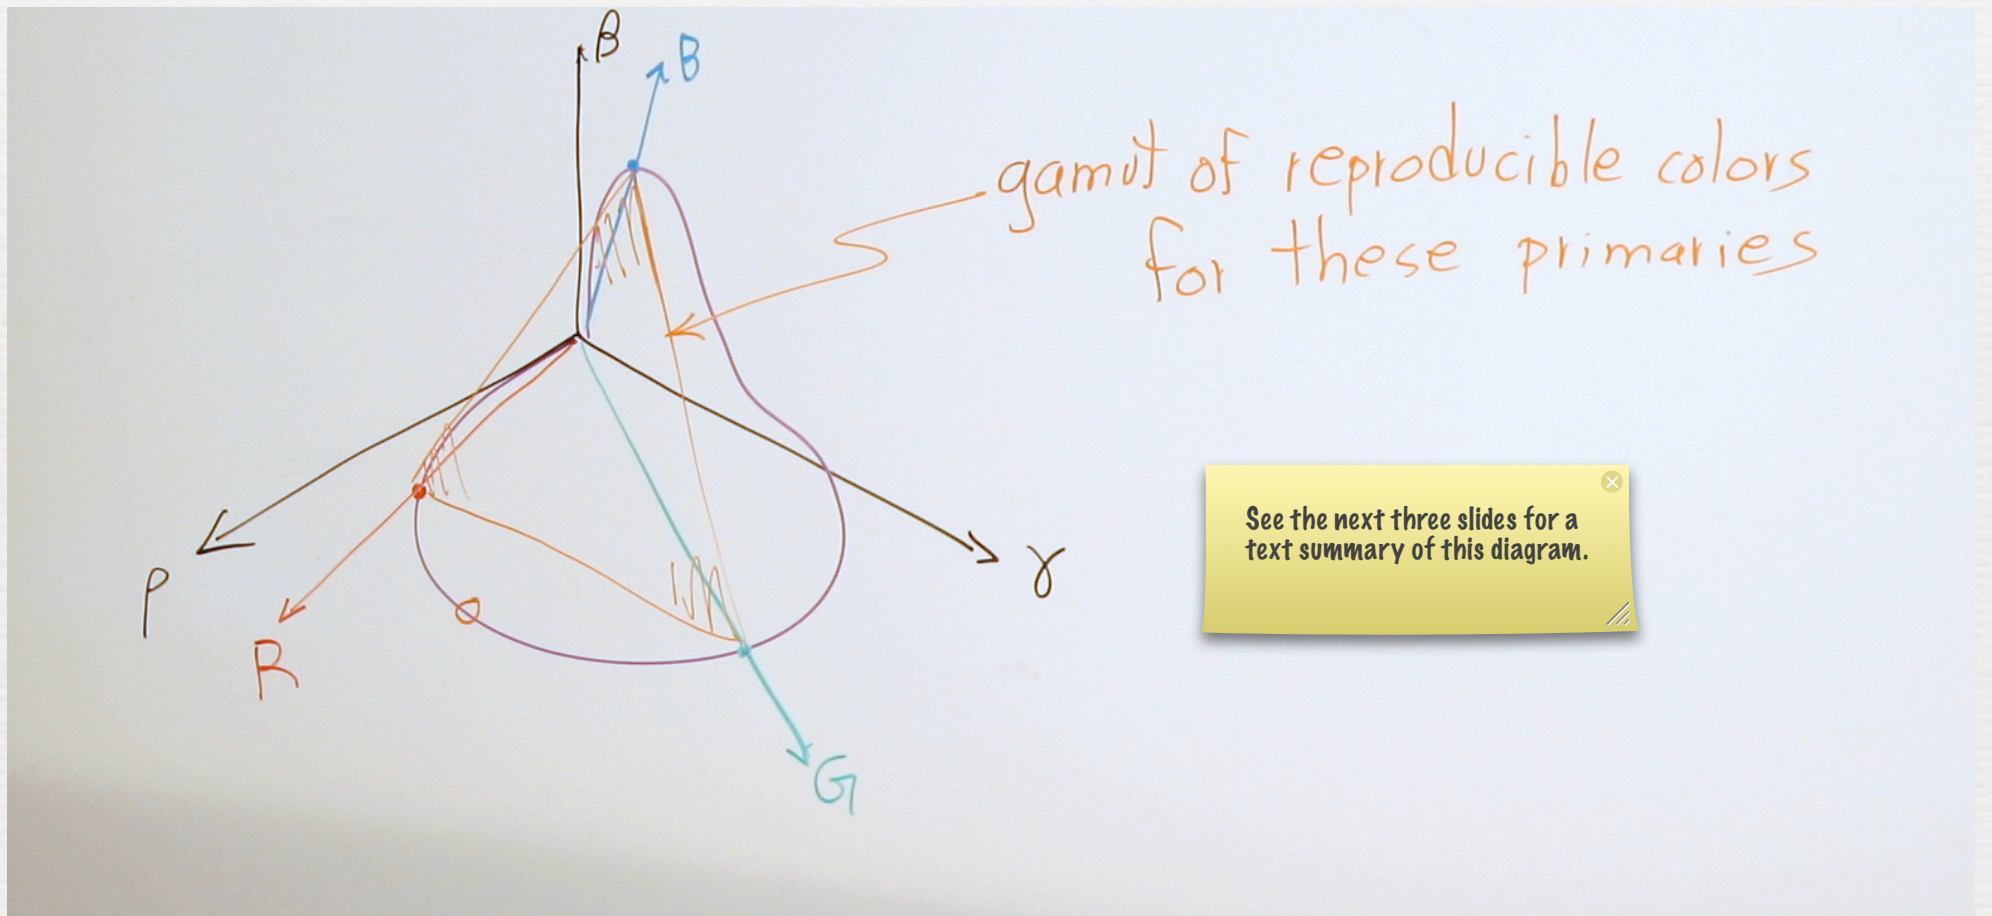 β
B
gamut of reproducible colors
for these primaries
See the next three slides for a
text summary of this diagram.
ρ
γ
R
G